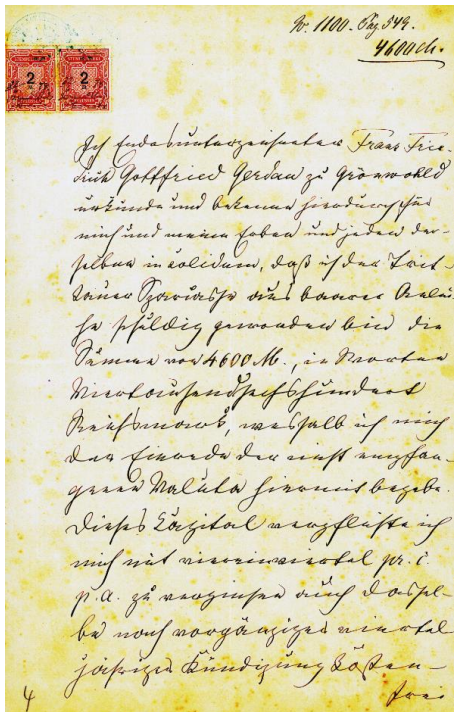 No. 1100. Pag 549.
4600 M.
2 2
Ich Endesunterzeichneter Franz Frie-
drich Gottfried Gerdau zu Grönwohld
urkunde und bekenne hierdurch für
mich und meine Erben und jeden der-
selben in solidum, daß ich der Trit-
tauer Sparcasse aus baarer Anlei-
he schuldig geworden bin die
Summe von 4600 M., in Worten
Viertausendsechshundert
Reichsmark, weshalb ich mich
der Einrede der nicht empfan-
genen Valuta hiermit begebe.
Dieses Kapital verpflichte ich
mich mit viereinviertel pr. c.
p. a. zu verzinsen auch dassel-
be nach vorgängiger viertel
jähriger Kündigung kosten-
frei
4